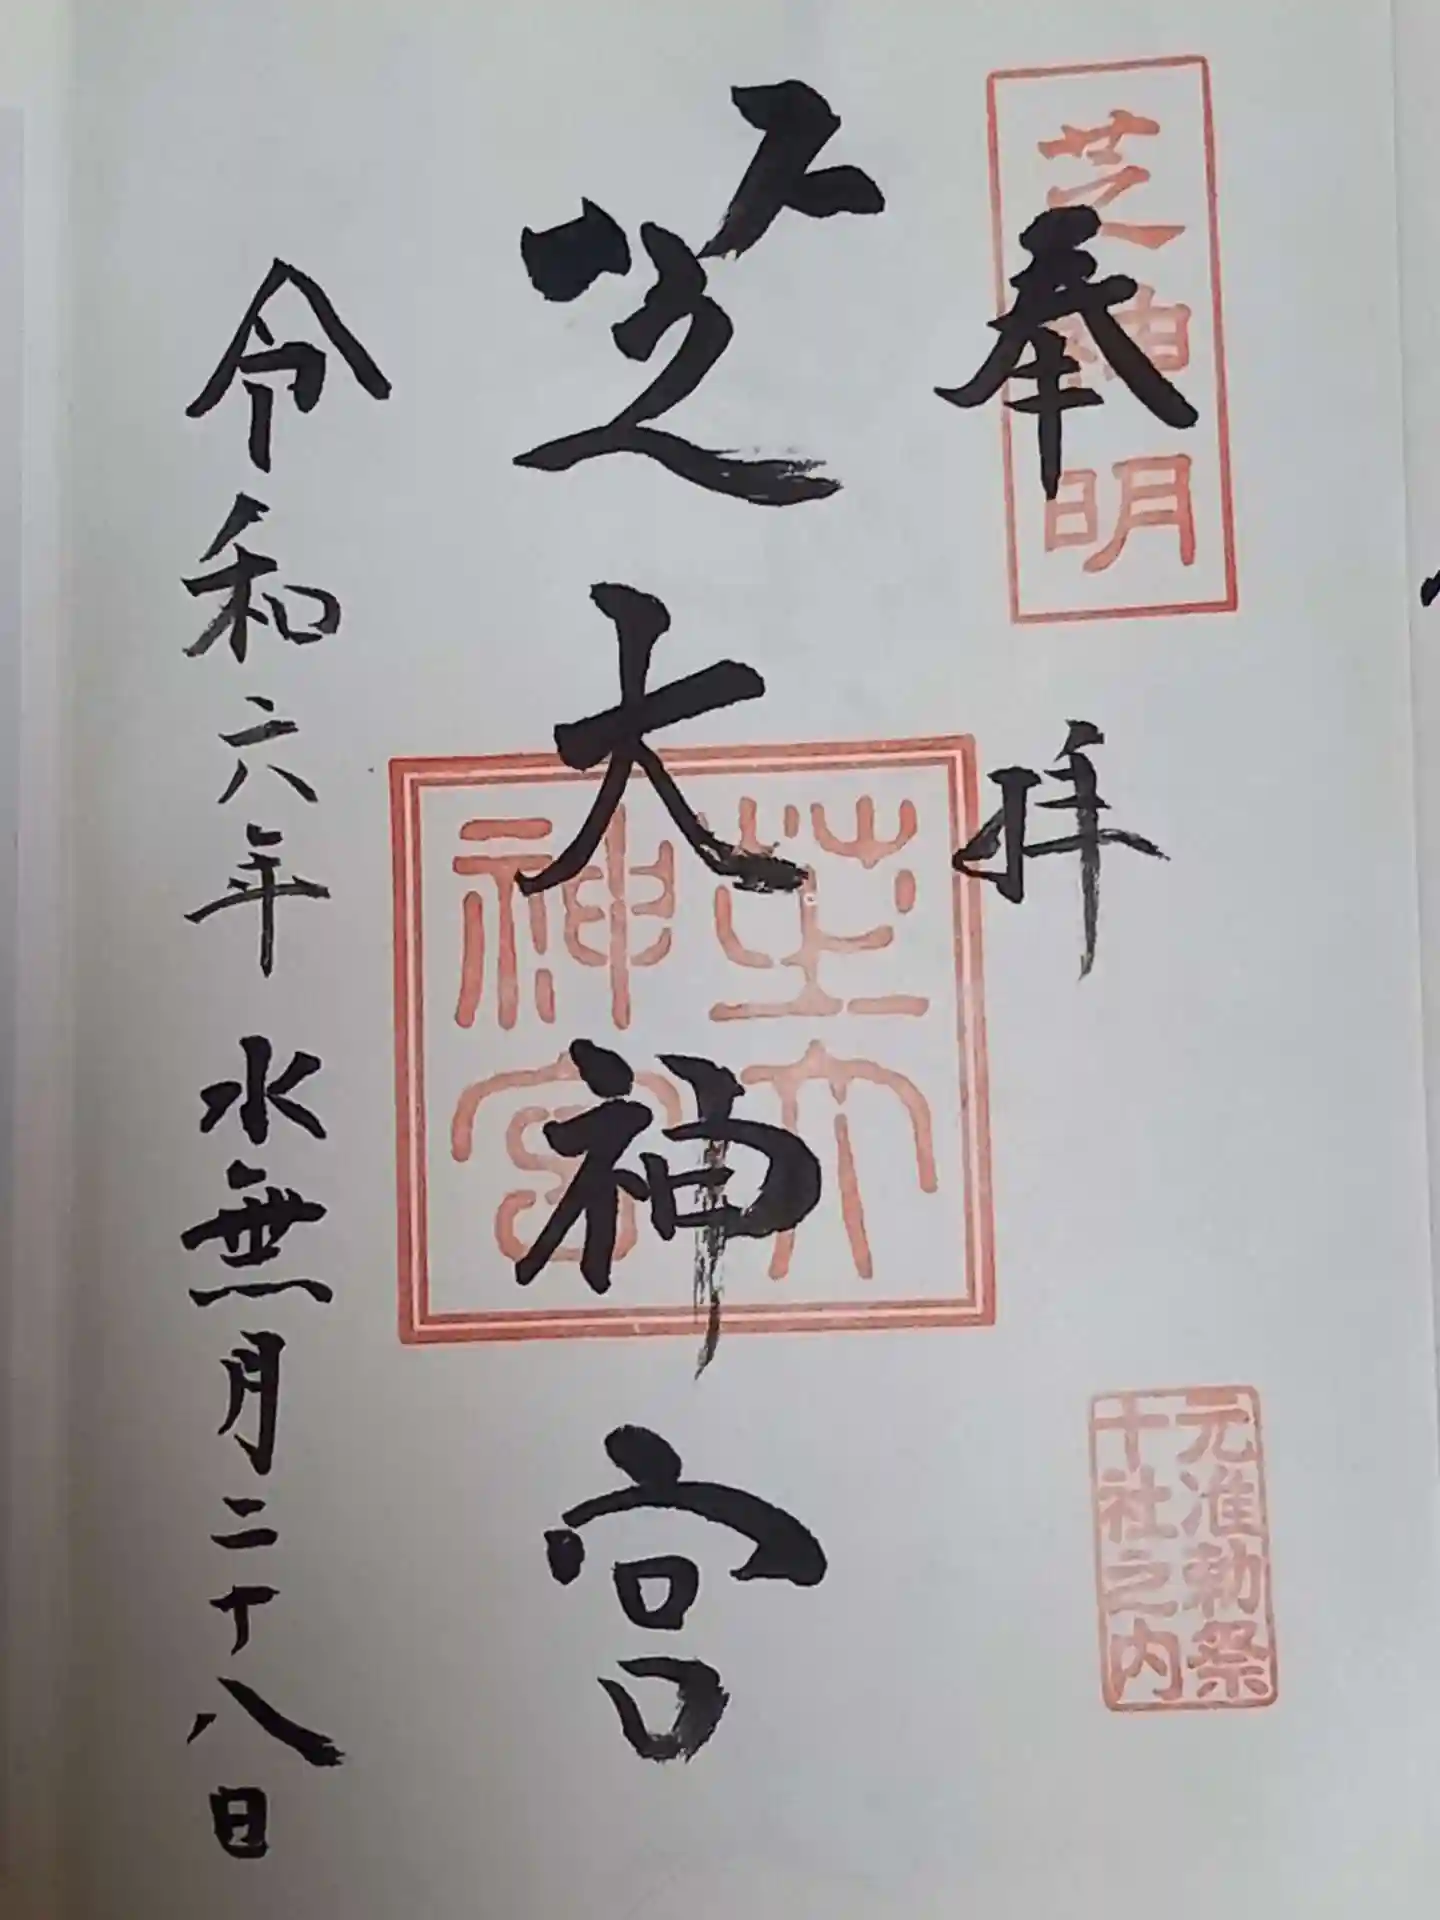 奉拝
芝神明
元准勅祭
十社之内
芝大神宮
芝大
神宮
令和六年水無月二十八日